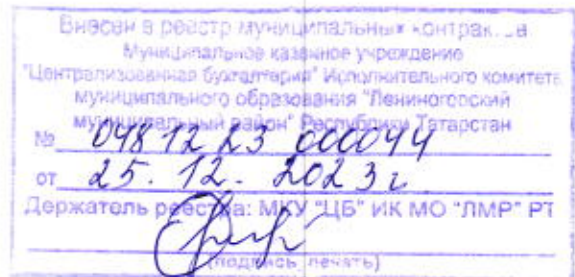 Внесен в реестр муниципальных контрак
Муниципальное казенное учреждение
"Централизованная бухгалтерия" Исполнительного комитета
муниципального образования "Лениногорский
муниципальный район" Республики Татарстан
№ 0481223 000044
от 25. 12. 2023 г
Держатель реестра: МКУ "ЦБ" ИК МО "ЛМР" РТ
(подпись, печать)